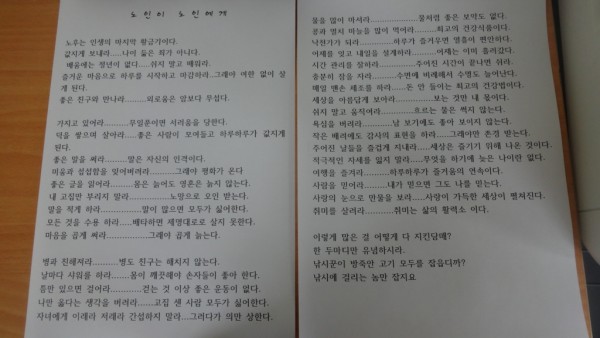 노인이 노인에게
노후는 인생의 마지막 황금기이다.
값지게 보내라....나이 듦은 죄가 아니다.
배움에는 정년이 없다.....쉬지 말고 배워라.
즐거운 마음으로 하루를 시작하고 마감하라...그래야 여한 없이 살
게 된다.
좋은 친구와 만나라.........외로움은 암보다 무섭다.
가지고 있어라..........무일푼이면 서러움을 당한다.
덕을 쌓으며 살아라.....좋은 사람이 모여들고 하루하루가 값지게
된다.
좋은 말을 써라.........말은 자신의 인격이다.
미움과 섭섭함을 잊어버려라.........그래야 평화가 온다
좋은 글을 읽어라.........몸은 늙어도 영혼은 늙지 않는다.
내 고집만 부리지 말라............노망으로 오인 받는다.
말을 적게 하라..............말이 많으면 모두가 싫어한다.
모든 것을 수용 하라......배타하면 제명대로도 살지 못한다.
마음을 곱게 써라..............그래야 곱게 늙는다.
병과 친해져라.........병도 친구는 해치지 않는다.
날마다 샤워를 하라......몸이 깨끗해야 손자들이 좋아 한다.
틈만 있으면 걸어라.........걷는 것 이상 좋은 운동이 없다.
나만 옳다는 생각을 버려라......고집 센 사람 모두가 싫어한다.
자녀에게 이래라 저래라 간섭하지 말라...그러다가 의만 상한다.
물을 많이 마셔라..............물처럼 좋은 보약도 없다.
콩과 멸치 마늘을 많이 먹어라.........최고의 건강식품이다.
낙천가가 되라............하루가 즐거우면 열흘이 편안하다.
어제를 잊고 내일을 설계하라............어제는 이미 흘러갔다.
시간 관리를 잘하라............주어진 시간이 끝나면 쉬라.
충분히 잠을 자라......수면에 비례해서 수명도 늘어난다.
매일 맨손 체조를 하라.....돈 안 들이는 최고의 건강법이다.
세상을 아름답게 보아라............보는 것만 내 몫이다.
쉬지 말고 움직여라............흐르는 물은 썩지 않는다.
욕심을 버려라............남 보기에도 좋아 보이지 않는다.
작은 배려에도 감사의 표현을 하라......그래야만 존경 받는다.
주어진 날들을 즐겁게 지내라......세상은 즐기기 위해 나온 것이다.
적극적인 자세를 잃지 말라......무엇을 하기에 늦은 나이란 없다.
여행을 즐겨라............하루하루가 즐거움의 연속이다.
사람을 믿어라.........내가 믿으면 그도 나를 믿는다.
사랑의 눈으로 만물을 보라.....사랑이 가득한 세상이 펼쳐진다.
취미를 살려라............취미는 삶의 활력소 이다.
이렇게 많은 걸 어떻게 다 지킨담매?
한 두마디만 유념하시라.
낚시꾼이 발죽안 고기 모두를 잡읍디까?
낚시배 걸리는 놈만 잡지요